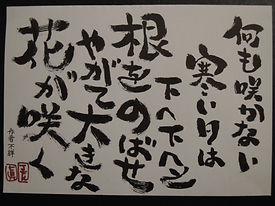 何も咲かない
寒い日は
下へ下へと
根をのばせ
やがて大きな
花が咲く
作者不詳